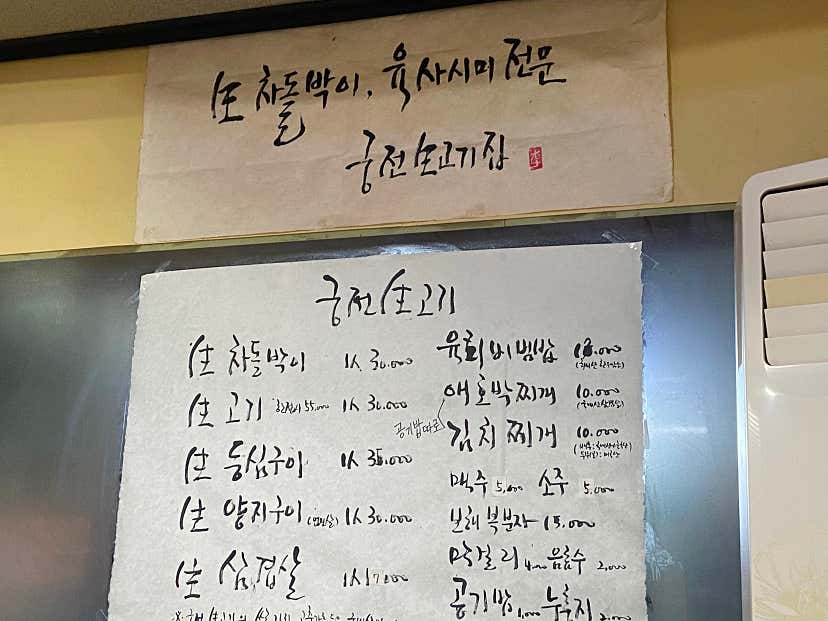 生 차돌박이, 육사시미 전문
궁전 生고기집
궁전 生고기
生 차돌박이 1人 30,000
生 고기 한접시 55,000 1人 30,000
生 등심구이 1人 35,000
生 양지구이 1人 30,000
生 삼겹살 1人 17000
육회비빔밥
애호박찌개 10,000
공기밥따로
김치찌개 10,000
맥주 5,000 소주 5,000
보해 복분자 15,000
막걸리 4,000 음료수 2,000
공기밥 1,000 누룽지 2,000